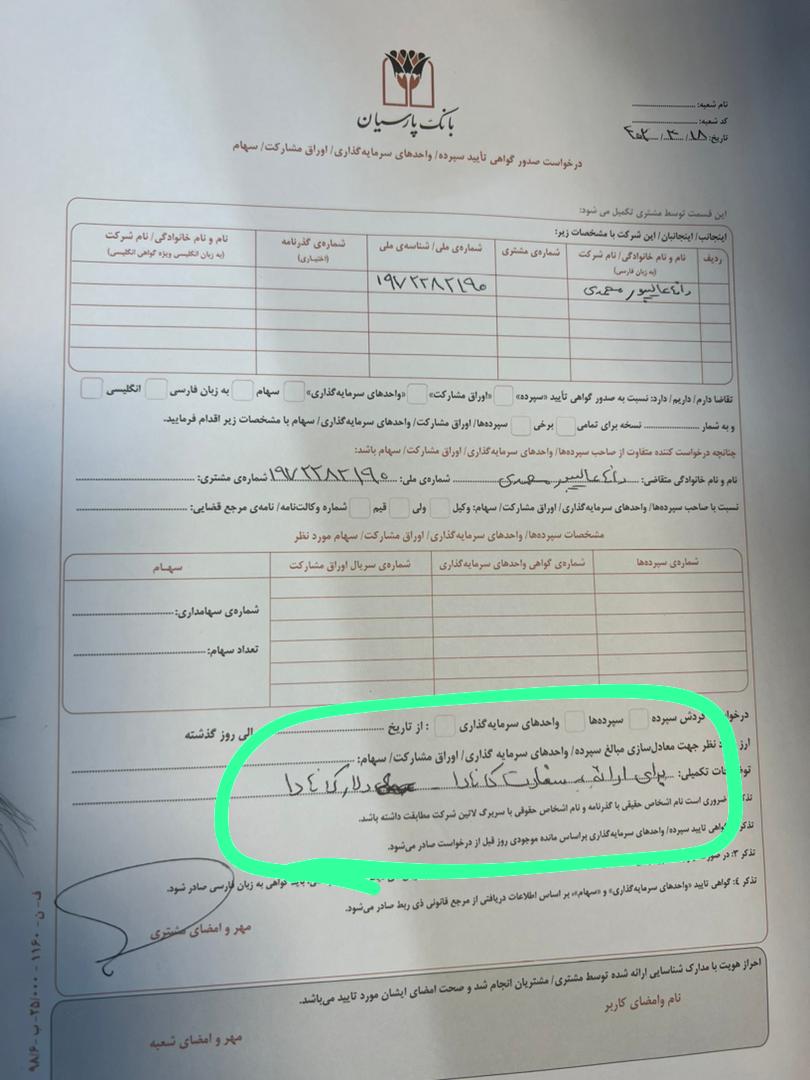 بانک پارسیان
نام شعبه:
کد شعبه:
تاریخ: ۴۰۲/۳/۱۸
درخواست صدور گواهی تأیید سپرده/ واحدهای سرمایه‌گذاری/ اوراق مشارکت/ سهام
این قسمت توسط مشتری تکمیل می شود:
اینجانب/ اینجانبان/ این شرکت با مشخصات زیر:
ردیف نام و نام خانوادگی/ نام شرکت (به زبان فارسی) شماره‌ی مشتری شماره‌ی ملی/ شناسه‌ی ملی شماره‌ی گذرنامه (اختیاری) نام و نام خانوادگی/ نام شرکت (به زبان انگلیسی ویژه گواهی انگلیسی)
محمدی ۱۹۷۲۲۸۲۱۹۰
تقاضا دارم/ داریم/ دارد: نسبت به صدور گواهی تأیید «سپرده» «اوراق مشارکت» «واحدهای سرمایه‌گذاری» سهام به زبان فارسی انگلیسی
و به شمار نسخه برای تمامی برخی سپرده‌ها/ اوراق مشارکت/ واحدهای سرمایه‌گذاری/ سهام با مشخصات زیر اقدام فرمایید.
چنانچه درخواست کننده متفاوت از صاحب سپرده‌ها/ واحدهای سرمایه‌گذاری/ اوراق مشارکت/ سهام باشد:
نام و نام خانوادگی متقاضی: محمدی شماره‌ی ملی: ۱۹۷۲۲۸۲۱۹۰ شماره‌ی مشتری:
نسبت با صاحب سپرده‌ها/ واحدهای سرمایه‌گذاری/ اوراق مشارکت/ سهام: وکیل ولی قیم شماره وکالت‌نامه/ نامه‌ی مرجع قضایی:
مشخصات سپرده‌ها/ واحدهای سرمایه‌گذاری/ اوراق مشارکت/ سهام مورد نظر
شماره‌ی سپرده‌ها شماره‌ی گواهی واحدهای سرمایه‌گذاری شماره‌ی سریال اوراق مشارکت سهـام
شماره‌ی سهامداری:
تعداد سهام:
گردش سپرده سپرده‌ها واحدهای سرمایه‌گذاری : از تاریخ الی روز گذشته
نظر جهت معادل‌سازی مبالغ سپرده/ واحدهای سرمایه گذاری/ اوراق مشارکت/ سهام:
تکمیلی: برای ارائه به سفارت کانادا - دلار کانادا
ضروری است نام اشخاص حقیقی با گذرنامه و نام اشخاص حقوقی با سربرگ لاتین شرکت مطابقت داشته باشد.
گواهی تایید سپرده/ واحدهای سرمایه‌گذاری براساس مانده موجودی روز قبل از درخواست صادر می‌شود.
تذکر ۳: در باید گواهی به زبان فارسی صادر شود.
تذکر ٤: گواهی تایید «واحدهای سرمایه‌گذاری» و «سهام»، بر اساس اطلاعات دریافتی از مرجع قانونی ذی ربط صادر می‌شود.
مهر و امضای مشتری
احراز هویت با مدارک شناسایی ارائه شده توسط مشتری/ مشتریان انجام شد و صحت امضای ایشان مورد تایید می‌باشد.
نام وامضای کاربر
مهر و امضای شعبه
ف - ن - ۱۱۶۰ - ۲۵/۰۰۰ - ب - ۹۸/۶